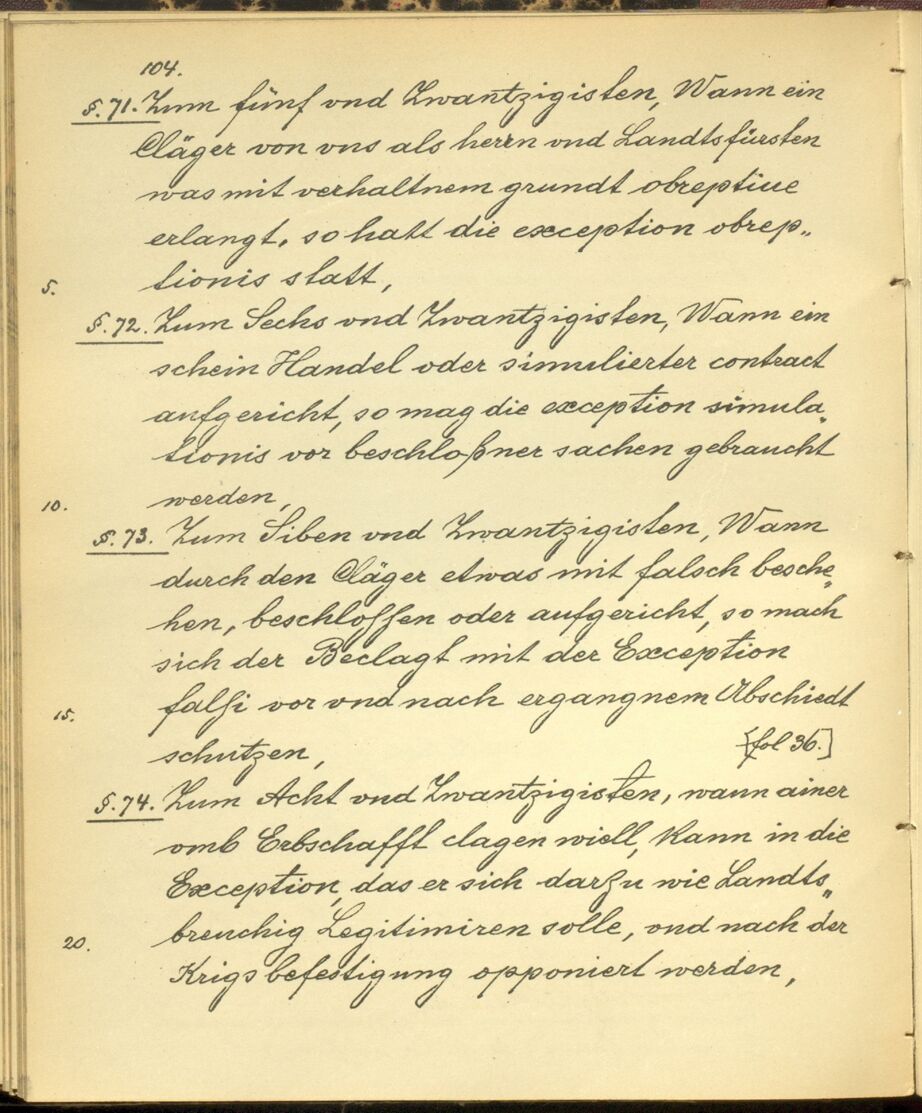 104.
§. 71. Zum fünf vnd Zwantzigisten, Wann ein
Cläger von vns als herrn vnd Landtsfürsten
was mit verhaltnem grundt obreptiue
erlangt, so hatt die exception obrep„
5. tionis statt,
§. 72. Zum Sechs vnd Zwantzigisten, Wann ein
schein Handel oder simulierter contract
aufgericht, so mag die exception simula„
tionis vor beschloßner sachen gebraucht
10. werden,
§. 73. Zum Siben vnd Zwantzigisten, Wann
durch den Cläger etwas mit falsch besche„
hen, beschlossen oder aufgericht, so mach
sich der Beclagt mit der Exception
15. falsi vor vnd nach ergangnem Abschiedt
schutzen,
[fol 36.]
§. 74. Zum Acht vnd Zwantzigisten, wann ainer
vmb Erbschafft clagen wiell, kann in die
Exception, das er sich darzu wie Landts„
20. breuchig Legitimiren solle, vnd nach der
Krigsbefestigung opponiert werden,